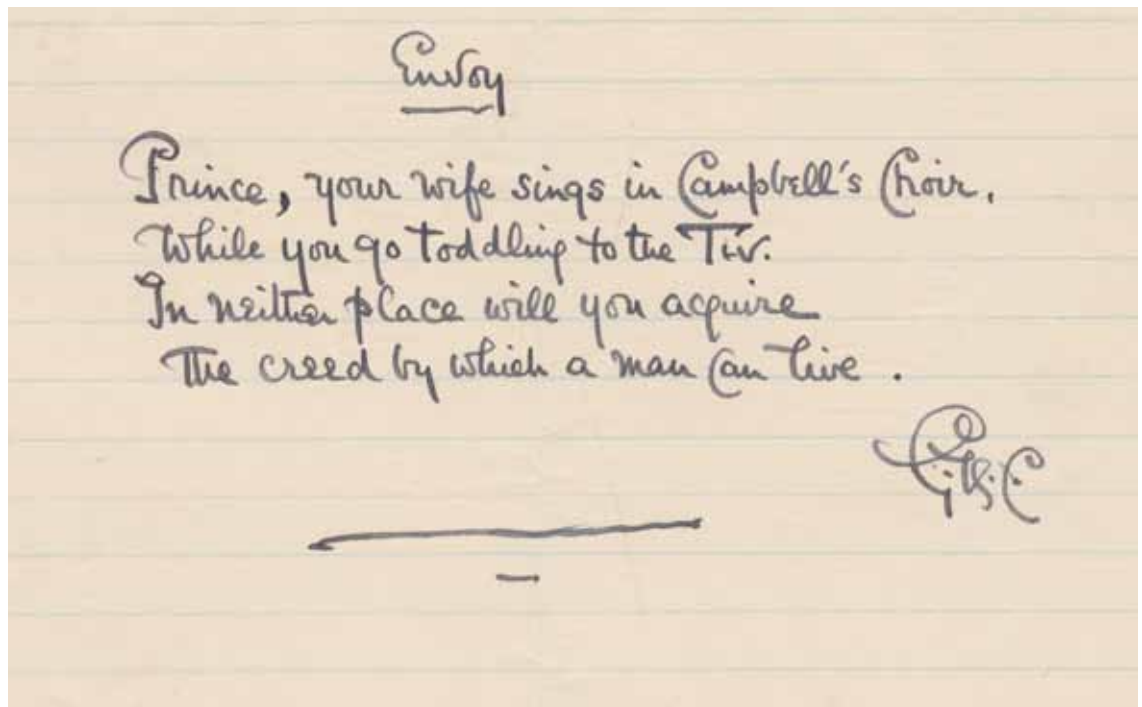 Envoy
Prince, your wife sings in Campbell's Choir,
While you go toddling to the Tiv.
In neither place will you acquire
The creed by which a man can live.
G.K.C